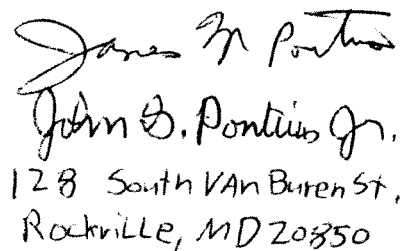 James M Pontius
John G. Pontius Jr.
128 South VAn Buren St.
Rockville, MD 20850